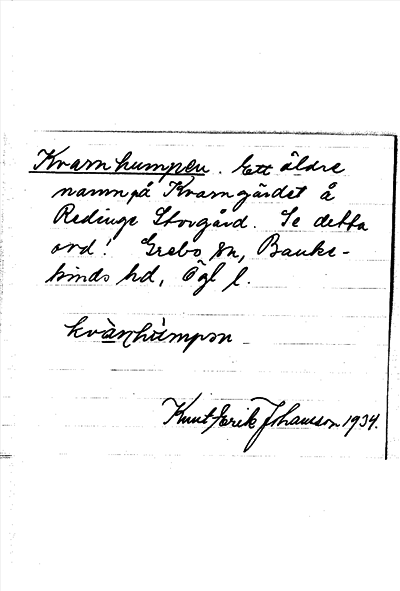 Kvarnhumpen. Ett äldre
namn på Kvarngärdet å
Redinge Storgård. Se detta
ord! Grebo sn, Banke-
kinds hd, Ögl l.
kvàṇhùmpən
Knut-Erik Johansson 1934.